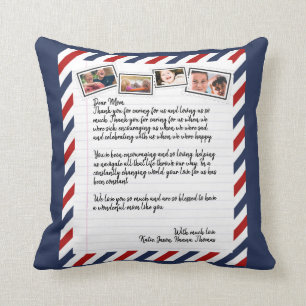 Dear Mom,
Thank you for caring for us and loving us so
much. Thank you for caring for us when we
were sick, encouraging us when we were sad,
and celebrating with us when we were happy.
You've been encouraging and so loving, helping
us navigate all that life throws our way. In a
constantly changing world, your love for us has
been constant.
We love you so much and are so blessed to have
a wonderful mom like you.
With much love
Katie, Jason, Hanna, Thomas